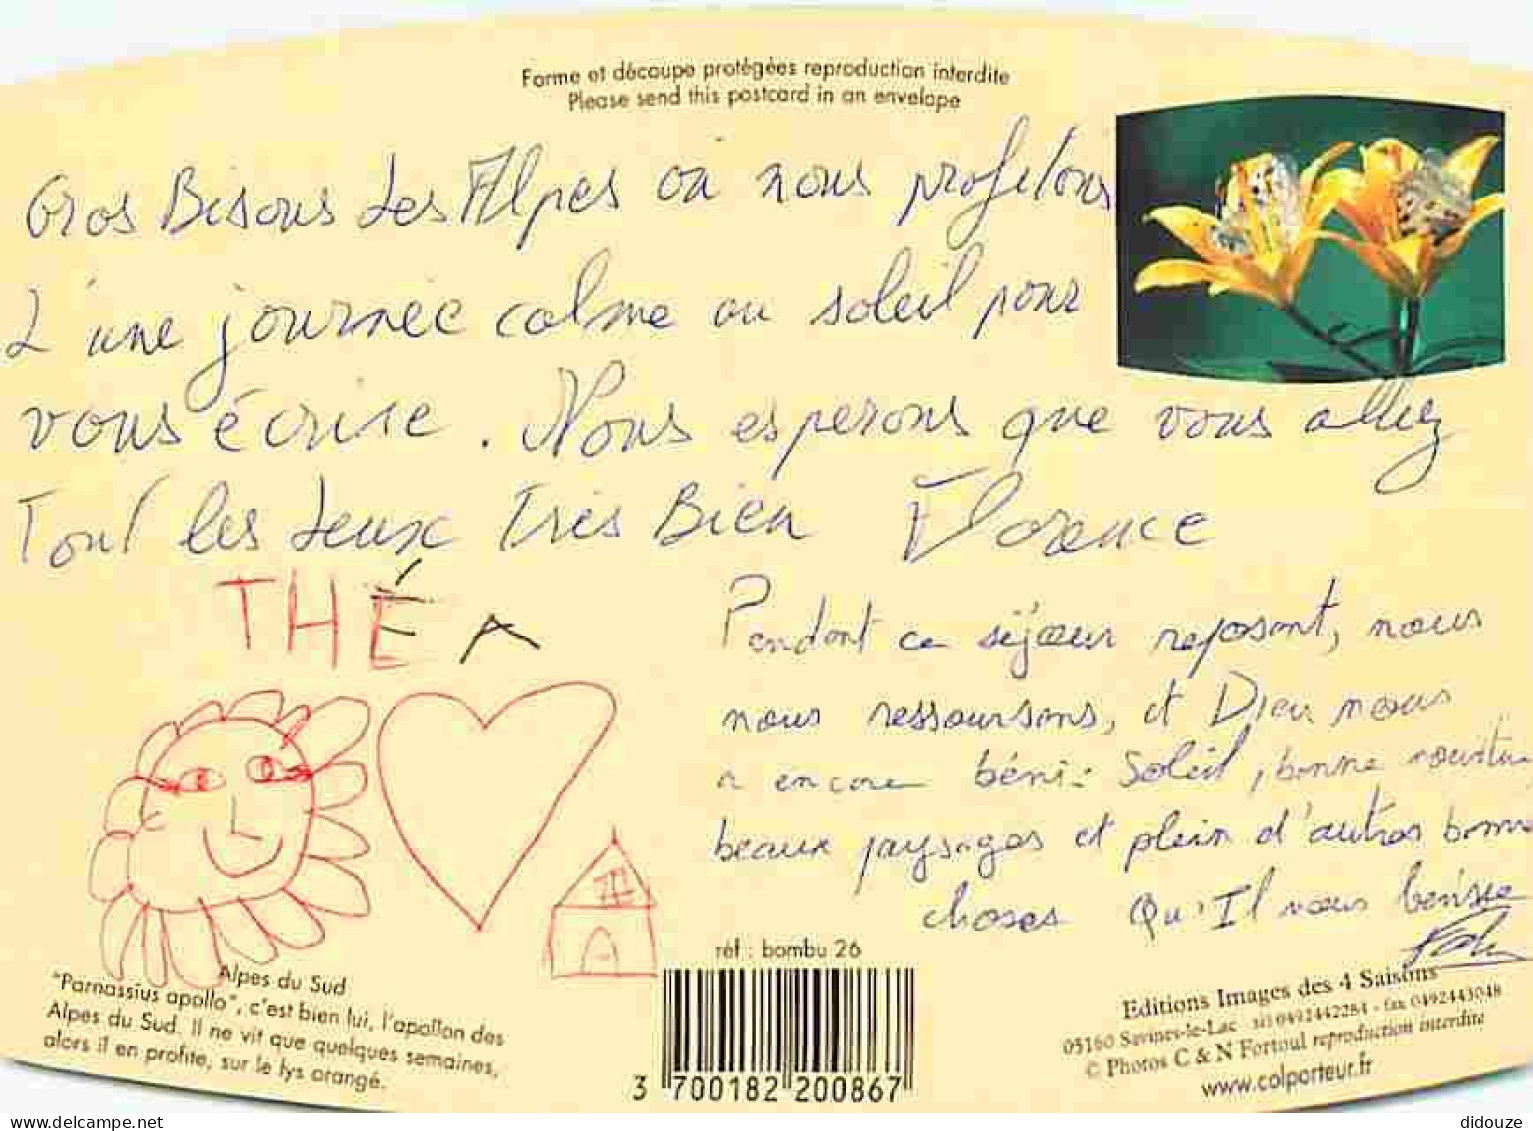 Forme et découpe protégées reproduction interdite
Please send this postcard in an envelope
Gros Bisous des Alpes où nous profitons
d'une journée calme au soleil pour
vous écrire. Nous esperons que vous allez
Tout les deux Très Bien Florence
THÉA
Pendant ce séjour reposant, nous
nous ressoursons, et Dieu nous
a encore béni: Soleil, bonne nourritu
beaux paysages et plein d'autres bonne
choses Qu'Il nous bénisse
réf : bombu 26
Alpes du Sud
"Parnassius apollo", c'est bien lui, l'apollon des
Alpes du Sud. Il ne vit que quelques semaines,
alors il en profite, sur le lys orangé.
3 700182 200867
Editions Images des 4 Saisons
05160 Savines-le-Lac tél 0492442284 - fax 0492443048
© Photos C & N Fortoul reproduction interdite
www.colporteur.fr
www.delcampe.net
didouze